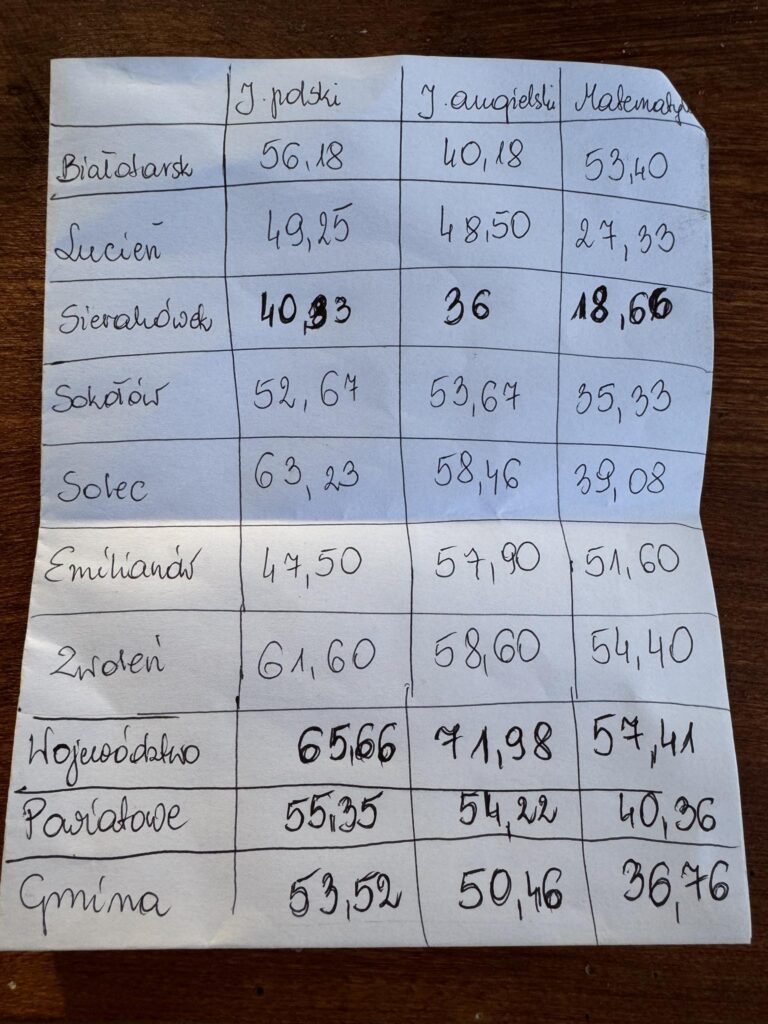 J. polski J. angielski Matematyk
Białotarsk 56,18 40,18 53,40
Lucień 49,25 48,50 27,33
Sierakówek 40,33 36 18,66
Sokołów 52,67 53,67 35,33
Solec 63,23 58,46 39,08
Emilianów 47,50 57,90 51,60
Zwoleń 61,60 58,60 54,40
Województwo 65,66 71,98 57,41
Powiatowe 55,35 54,22 40,36
Gmina 53,52 50,46 36,76